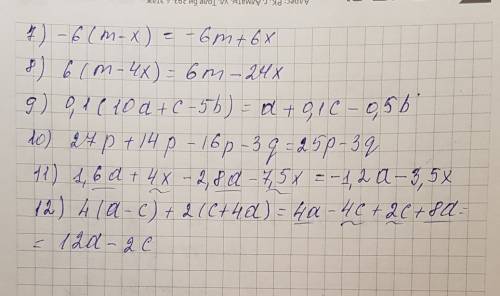 Адрес: РК, г. Алматы, ул. Толе би 293, 4 этаж
7) -6(m-x) = -6m+6x
8) 6(m-4x) = 6m-24x
9) 0,1(10a+c-5b) = a+0,1c-0,5b
10) 27p+14p-16p-3q=25p-3q
11) 1,6a+4x-2,8a-7,5x=-1,2a-3,5x
12) 4(a-c)+2(c+4a)=4a-4c+2c+8a=
= 12a-2c